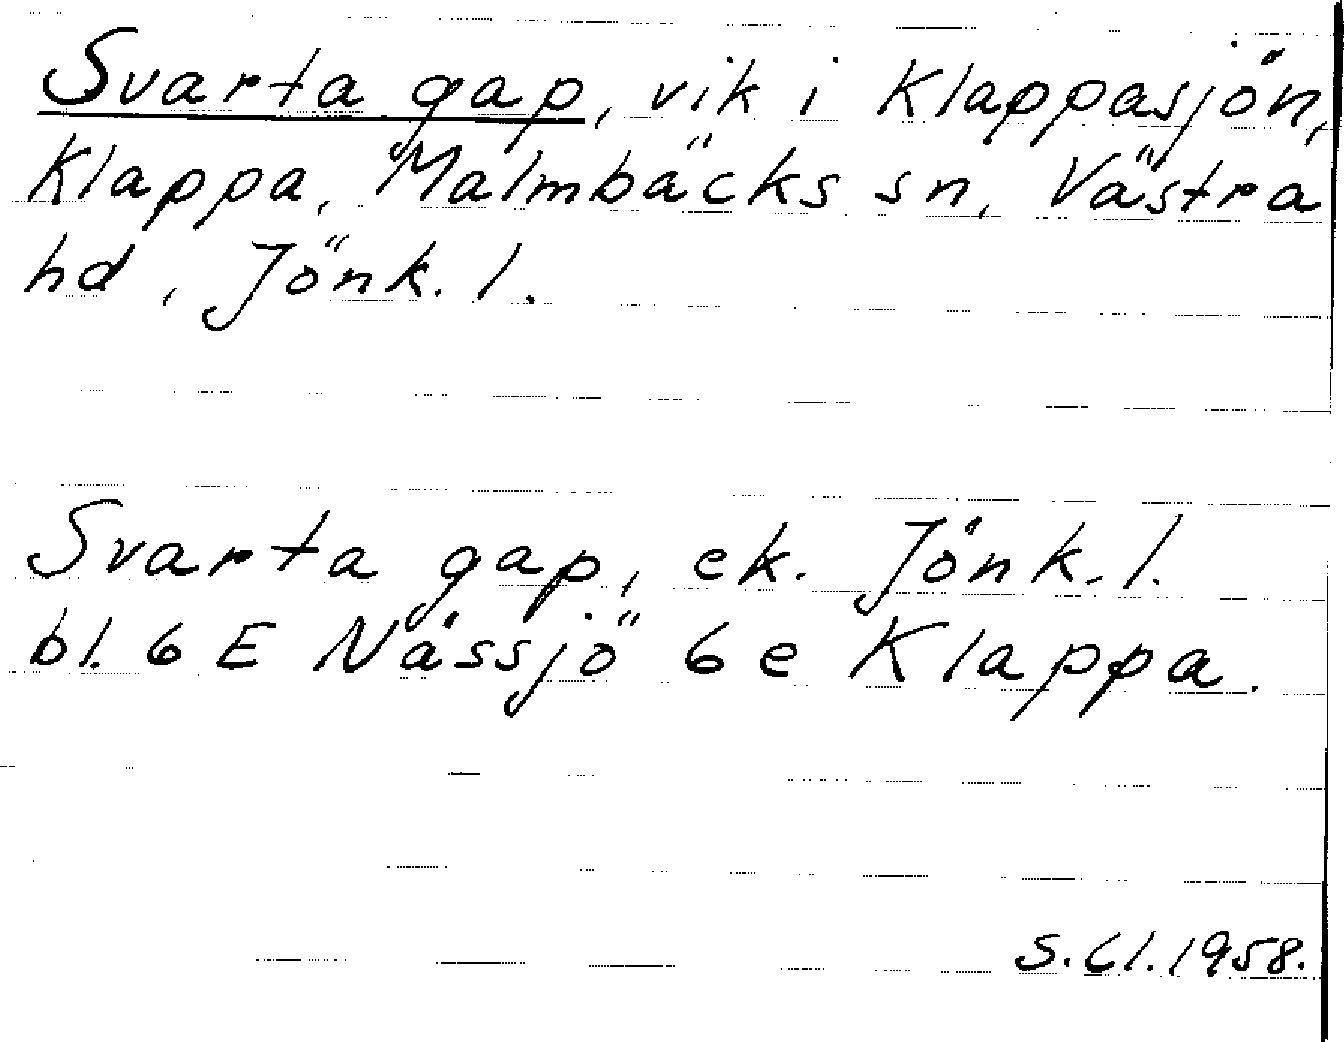 Svarta gap, vik i Klappasjön,
Klappa, Malmbäcks sn, Västra
hd, Jönk. l.
Svarta gap, ek. Jönk. l.
bl. 6 E Nässjö 6e Klappa.
S. Cl. 1958.